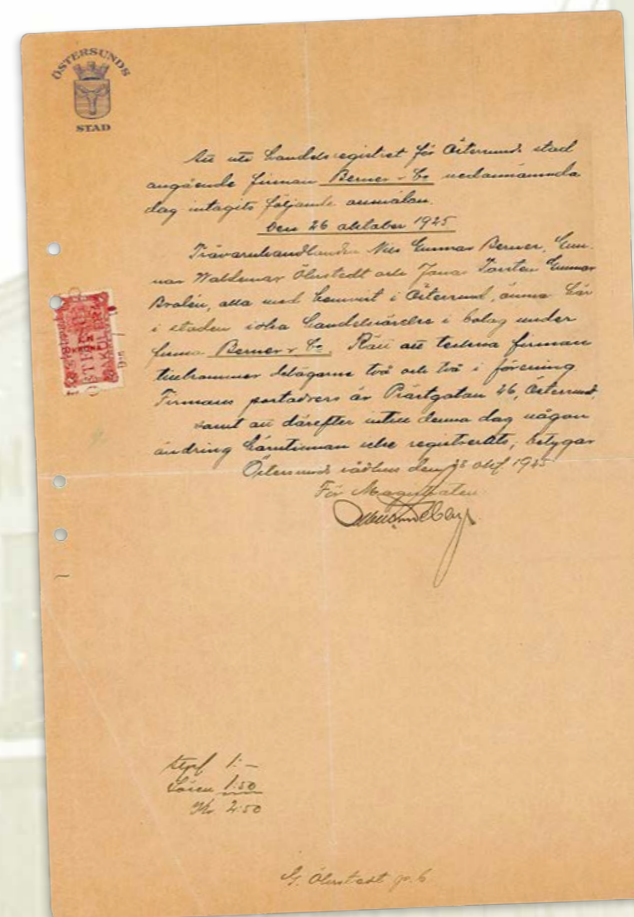 ÖSTERSUNDS
STAD
Att uti handelsregistret för Östersunds stad
angående firman Berner & Co nedannämnda
dag intagits följande anmälan.
den 26 oktober 1925
Trävaruhandlanden Nils Gunnar Berner, Gun-
nar Waldemar Öhnstedt och Jona Torsten Gunnar
Bralén, alla med hemvist i Östersund, ämna här
i staden idka handelsrörelse i bolag under
firma Berner & Co. Rätt att teckna firman
tillkommer delägarne två och två i förening
Firmans portadress är Prästgatan 46, Östersund.
samt att därefter intill denna dag någon
ändring härutinnan icke registrerats, betygar
Östersunds rådhus den 28 okt 1925
För Magistraten
1:-
Lösen 1:50
Kr 2:50
G. Öhnstedt